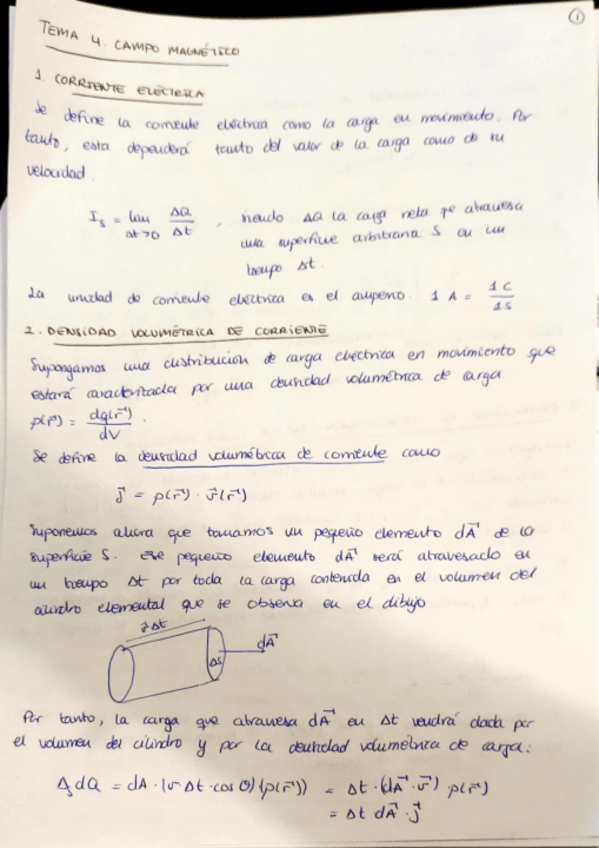 1
TEMA 4. CAMPO MAGNÉTICO
1. CORRIENTE ELÉCTRICA
Se define la corriente eléctrica como la carga en movimiento. Por
tanto, esta dependerá tanto del valor de la carga como de su
velocidad.
I_s = lim Δt→0 ΔQ/Δt , siendo ΔQ la carga neta que atraviesa
una superficie arbitraria S en un
tiempo Δt.
La unidad de corriente eléctrica es el amperio. 1 A = 1 C / 1 s
2. DENSIDAD VOLUMÉTRICA DE CORRIENTE
Supongamos una distribución de carga eléctrica en movimiento que
estará caracterizada por una densidad volumétrica de carga
ρ(r⃗) = dq(r⃗)/dV .
Se define la densidad volumétrica de corriente como
j⃗ = ρ(r⃗) · v⃗(r⃗)
Suponemos ahora que tomamos un pequeño elemento dA⃗ de la
superficie S. Ese pequeño elemento dA⃗ será atravesado en
un tiempo Δt por toda la carga contenida en el volumen del
cilindro elemental que se observa en el dibujo
v⃗Δt
ΔS
dA⃗
Por tanto, la carga que atraviesa dA⃗ en Δt vendrá dada por
el volumen del cilindro y por la densidad volumétrica de carga:
dQ = dA · (v · Δt · cos θ) (ρ(r⃗)) = Δt · (dA⃗ · v⃗) · ρ(r⃗)
= Δt dA⃗ · j⃗